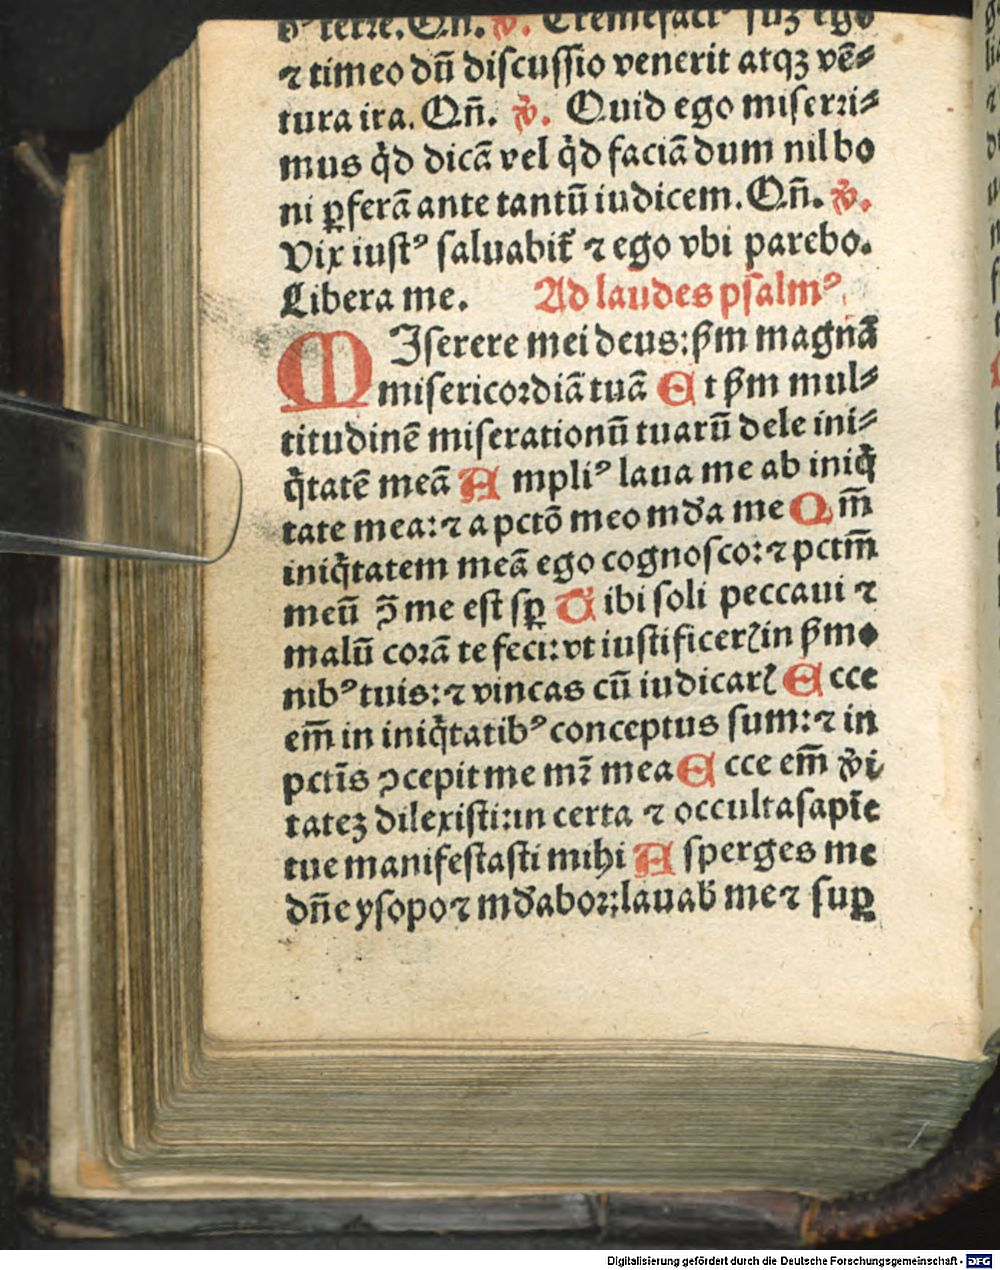 & terre. Qn̄. ℣. Tremefact⁹ suꝫ ego
⁊ timeo dū discussio venerit atqꝫ vē⸗
tura ira. Qn̄. ℣. Quid ego miserri⸗
mus q̇d dicā vel q̇d faciā dum nil bo
ni ꝑferā ante tantū iudicem. Qn̄. ℣.
Vix iust⁹ saluabit᷑ ⁊ ego vbi parebo.
Libera me. Ad laudes psalm⁹.
MIserere mei deus: ẜm magnā
misericordiā tuā Et ẜm mul⸗
titudinē miserationū tuarū dele ini⸗
q̇tatē meā Ampli⁹ laua me ab iniq̇
tate mea: ⁊ a pctō meo mūda me Qm̄
iniq̇tatem meā ego cognosco: ⁊ pctm̄
meū ꝯ̄ me est sꝑ Tibi soli peccaui ⁊
malū corā te feci: vt iustificerꝭ in ẜmo
nib⁹ tuis: ⁊ vincas cū iudicarꝭ Ecce
em̄ in iniq̇tatib⁹ conceptus sum: ⁊ in
pctīs ꝯcepit me mr̄ mea Ecce em̄ v̓i
tateꝫ dilexisti: incerta ⁊ occulta sapīe
tue manifestasti mihi Asperges me
dn̄e ysopo ⁊ mūdabor: lauab᷑ me ⁊ suꝑ
Digitalisierung gefördert durch die Deutsche Forschungsgemeinschaft - DFG